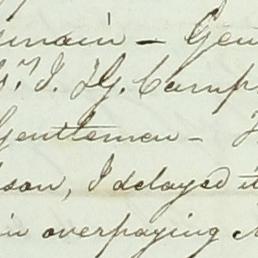 remain – Gen
J. & G. Camp
Gentlemen –
son, I delayed it
in overpaying